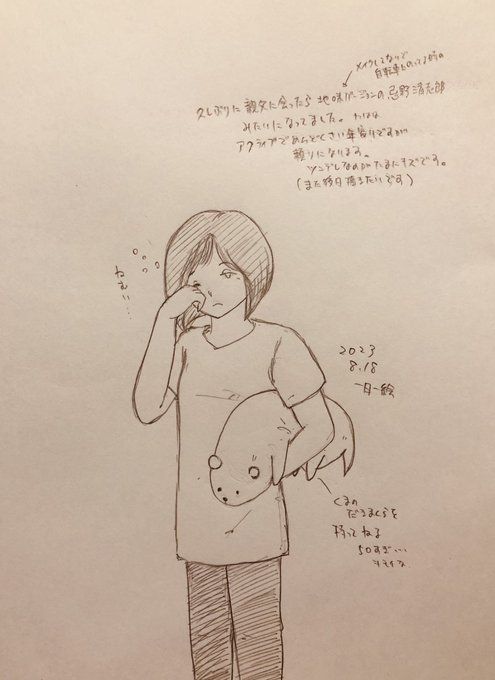 メイクしてなりで
自転車にのってる時の
久しぶりに 親父に会ったら 地味バージョンの 忌野清志郎
みたいになってました。
アクティブでめんどくさい年寄りですが
頼りになります。
ツンデレなのがたまにキズです。
(また 帰るたいです)
ねむい…
2023
8.18
一日一絵
くまの
だきまくらを
持って ねる
50すぎ…